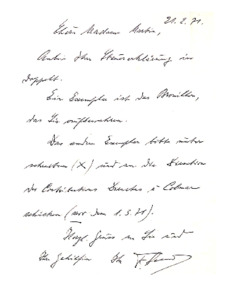 21.2.71.
Chère Madame Martin,
Anbei Ihre Steuererklärung in
doppelt.
Ein Exemplar ist das Brouillon,
das Sie aufbewahren.
Das andere Exemplar bitte unter
schreiben (X) und an die Direction
des Contributions Directes à Colmar
schicken (vor dem 1.3.71).
Herzl. Grüsse an Sie und
Ihr Ihr